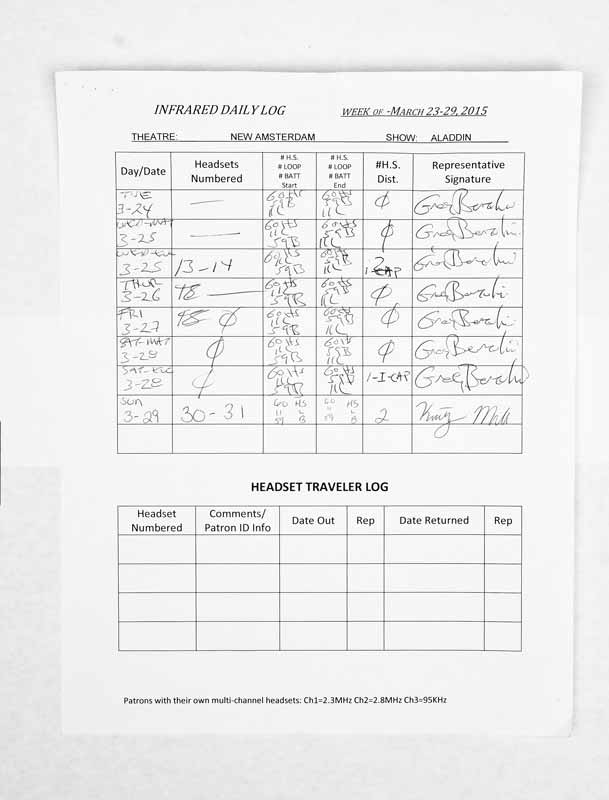 INFRARED DAILY LOG WEEK OF -MARCH 23-29, 2015
THEATRE: NEW AMSTERDAM SHOW: ALADDIN
Day/Date Headsets Numbered # H.S. # LOOP # BATT Start # H.S. # LOOP # BATT End #H.S. Dist. Representative Signature
TUE 3-24 — 60 HS 59B 11L 60HS 59B 11L ϕ Greg
WED-MAT 3-25 — 60HS 11L 59B 60HS 59B 11L ϕ Greg
3-25 13-14 60HS 11L 59B 60HS 59B 11L 1-CAP Greg
THUR 3-26 — 60HS 11L 59B 60HS 59B 11L ϕ Greg
FRI 3-27 ϕ 60HS 11L 59B 60HS 59B 11L ϕ Greg
SAT-MAT 3-28 ϕ 60HS 11L 59B 60HS 59B 11L ϕ Greg
SAT-EVE 3-28 ϕ 60HS 11L 59B 60HS 59B 11L 1-I-CAP Greg
SUN 3-29 30-31 60 HS 11 L 59 B 60 HS 11 L 59 B 2
HEADSET TRAVELER LOG
Headset Numbered Comments/ Patron ID Info Date Out Rep Date Returned Rep
Patrons with their own multi-channel headsets: Ch1=2.3MHz Ch2=2.8MHz Ch3=95KHz